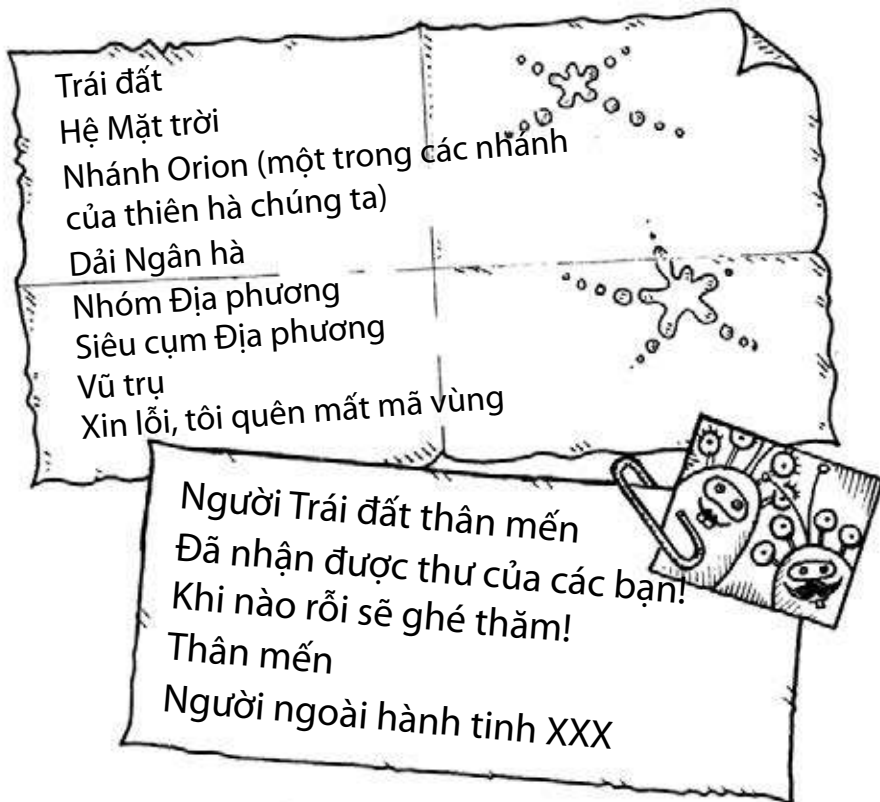 Trái đất
Hệ Mặt trời
Nhánh Orion (một trong các nhánh
của thiên hà chúng ta)
Dải Ngân hà
Nhóm Địa phương
Siêu cụm Địa phương
Vũ trụ
Xin lỗi, tôi quên mất mã vùng
Người Trái đất thân mến
Đã nhận được thư của các bạn!
Khi nào rỗi sẽ ghé thăm!
Thân mến
Người ngoài hành tinh XXX